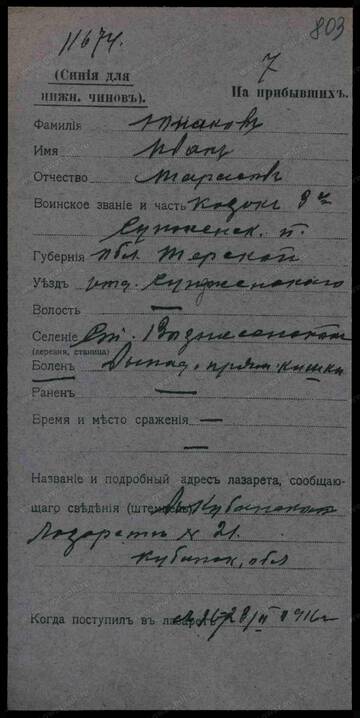 11674.
803
(Синія для
нижн. чиновъ).
7
На прибывшихъ.
Фамилія Юшаковъ
Имя Иванъ
Отчество Тарасовъ
Воинское званіе и часть Казакъ
Сунженск. п.
Губернія Обл. Терской
Уѣздъ отд. Сунженскаго
Волость —
Селеніе Ст. Вознесенской
(деревня, станица)
Боленъ Выпад. прям. кишки
Раненъ —
Время и мѣсто сраженія —
—
Названіе и подробный адресъ лазарета, сообщаю-
щаго свѣдѣнія (штемпель) Кубанскаго
Лазаретъ № 21.
Кубанск. обл
Когда поступилъ въ лазаретъ 28/II 1916 г